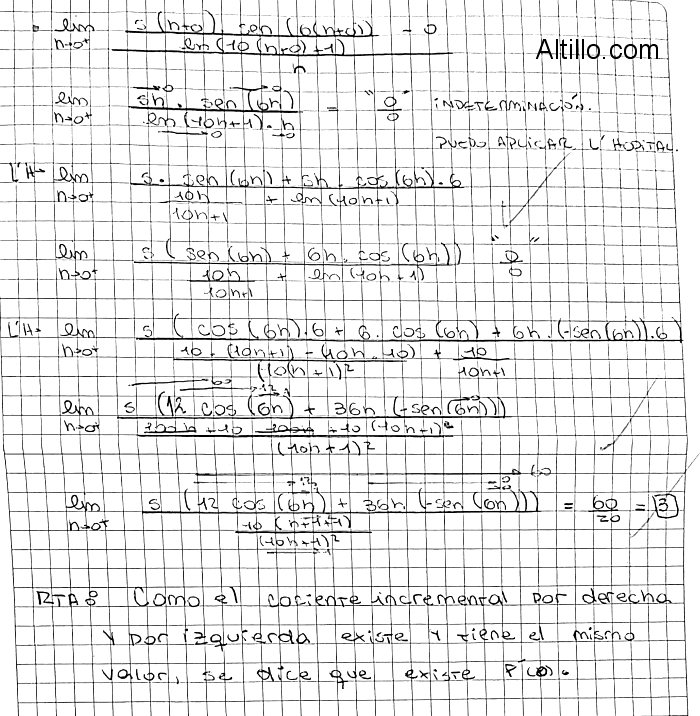 lim 5(h+0) . sen (6(h+0)) - 0
h→0⁺ ln(10(h+0)+1)
h
Altillo.com
lim 5h . sen(6h) = "0/0" INDETERMINACIÓN.
h→0⁺ ln(10h+1) . h
PUEDO APLICAR L'HOPITAL.
L'H- lim 5 . sen(6h) + 5h . cos(6h) . 6
h→0⁺ 10h/10h+1 + ln(10h+1)
lim 5 ( sen(6h) + 6h . cos(6h)) "0/0"
h→0⁺ 10h/10h+1 + ln(10h+1)
L'H- lim 5 ( cos(6h).6 + 6 . cos(6h) + 6h . (-sen(6h)).6)
h→0⁺ 10 . (10h+1) - (10h . 10)/(10h+1)² + 10/10h+1
lim 5 (12 cos(6h) + 36h (-sen(6h)))
h→0⁺ 100h + 10 - 100h + 10 (10h+1)
(10h+1)²
lim 5 (12 cos(6h) + 36h (-sen(6h))) = 60/20 = 3
h→0⁺
(10h+1)²
RTA: Como el cociente incremental por derecha
y por izquierda existe y tiene el mismo
valor, se dice que existe